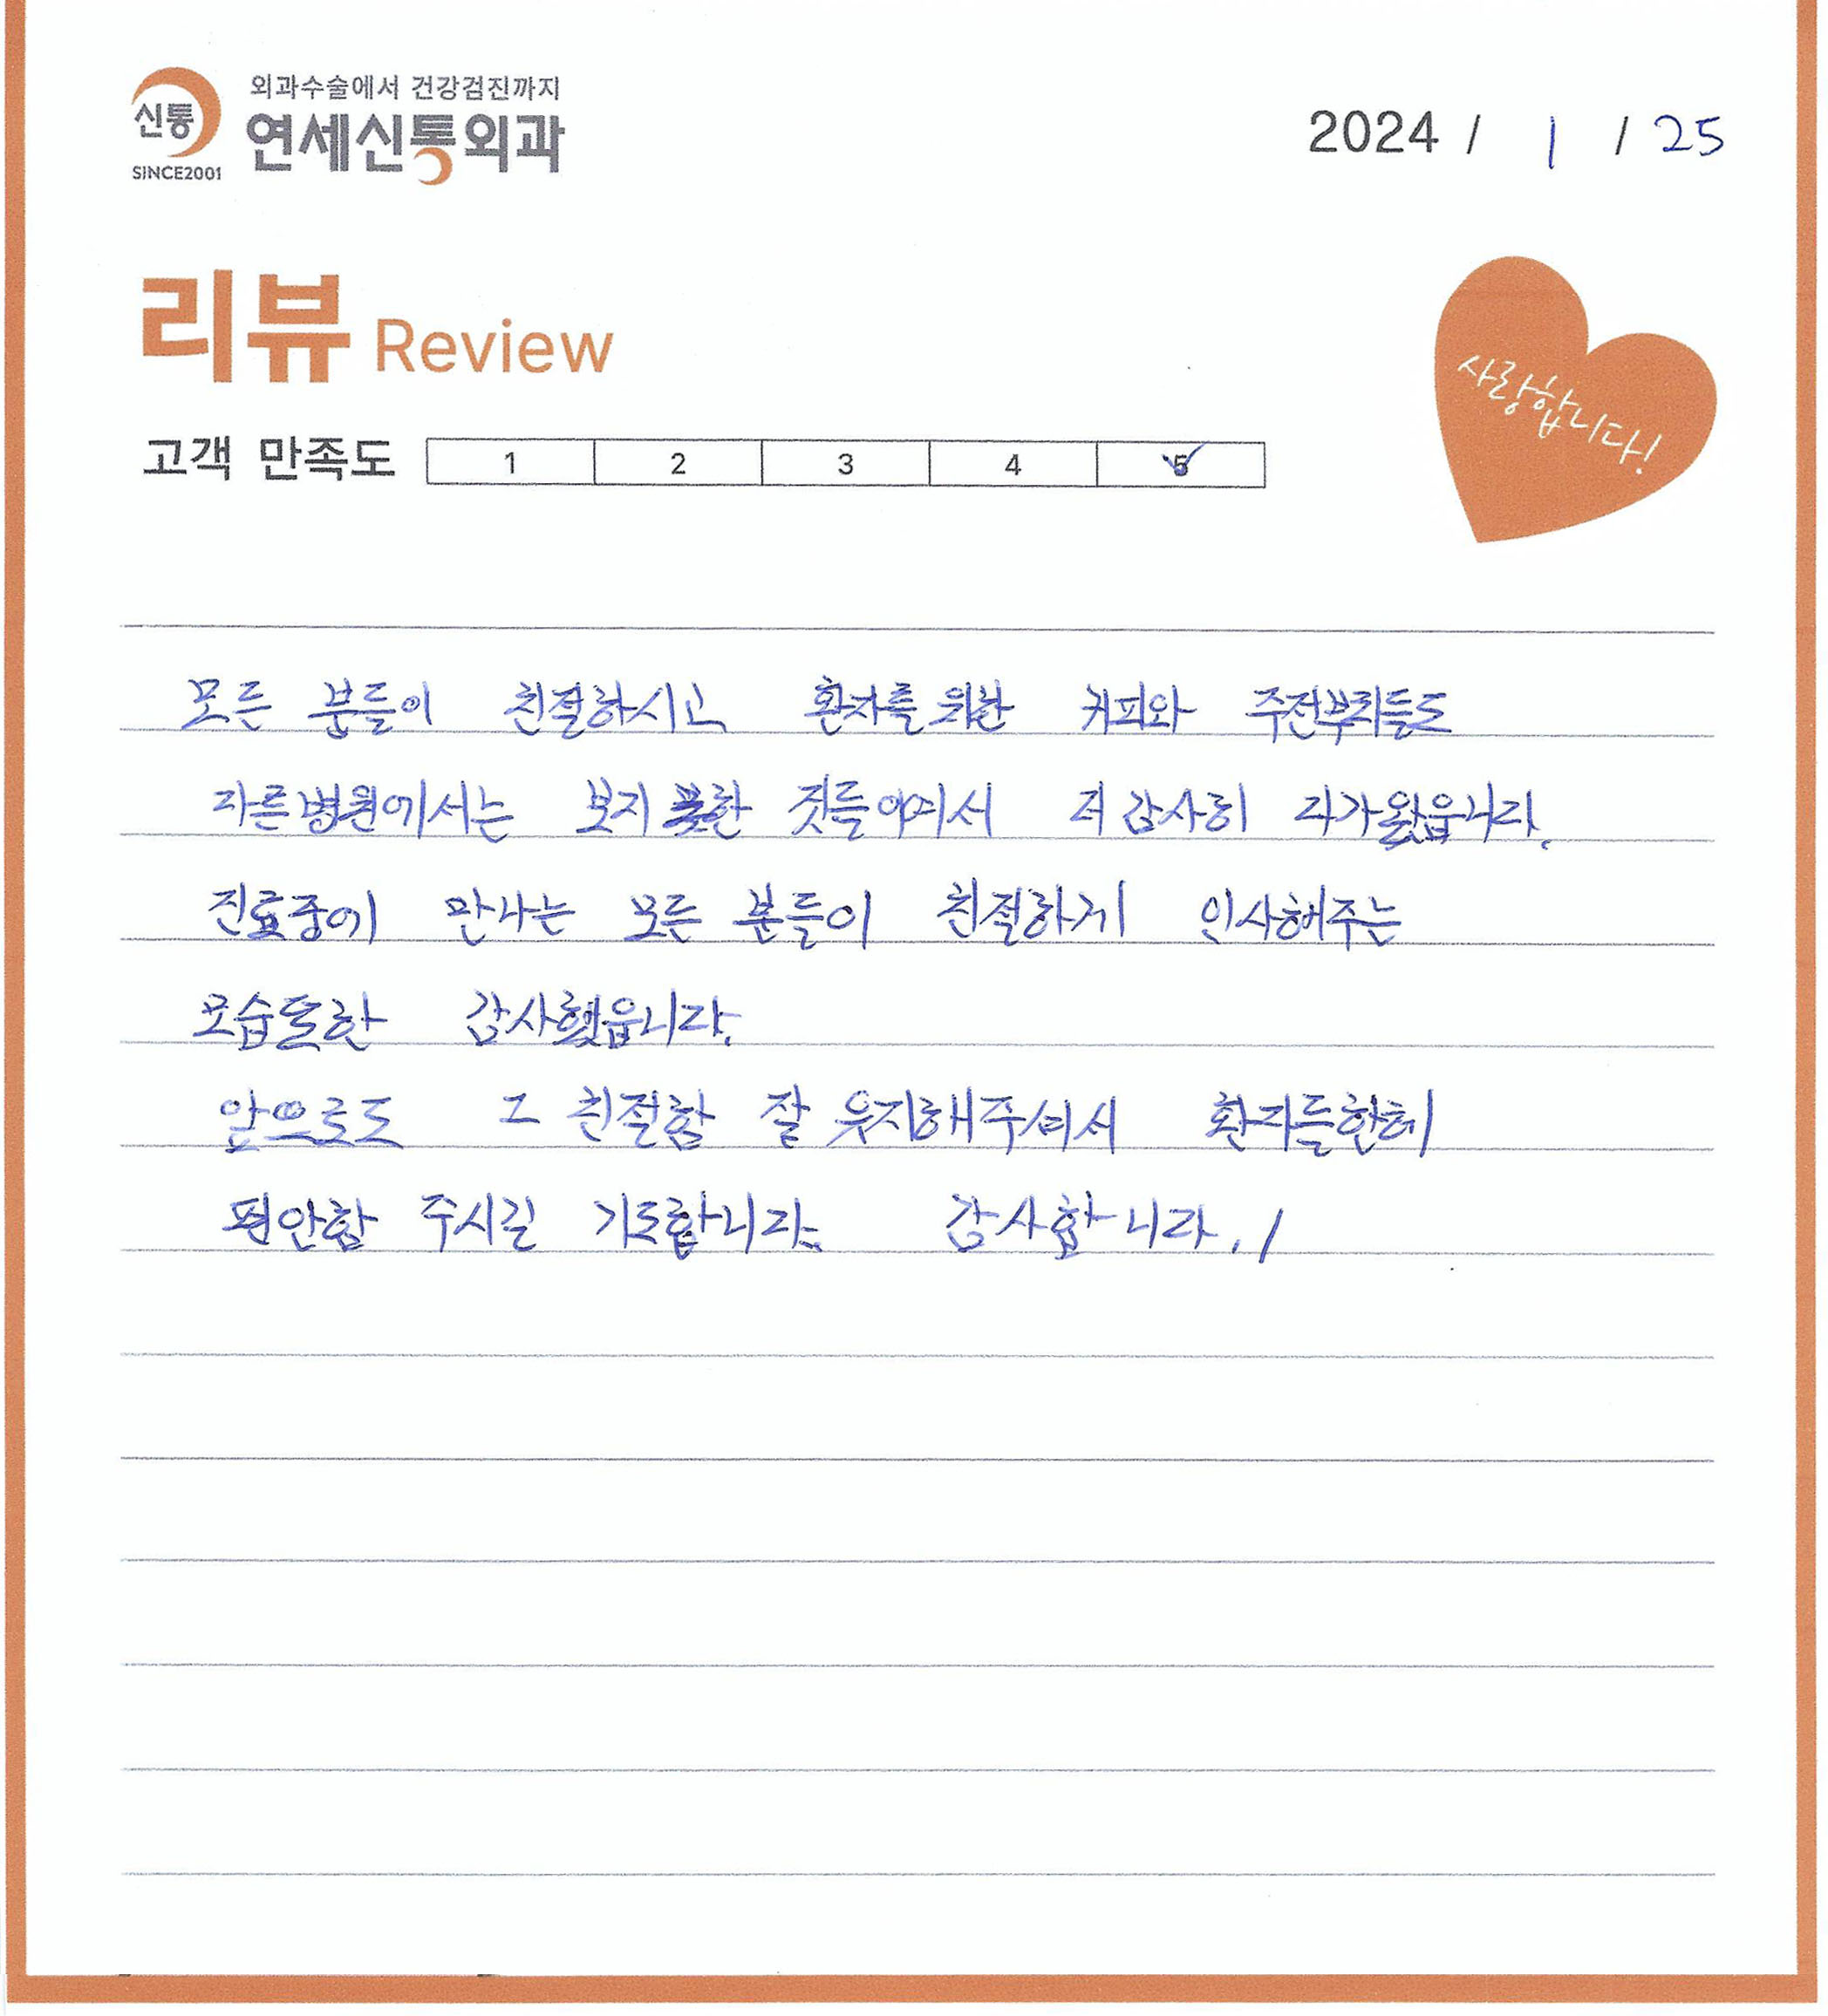 신통
SINCE2001
외과수술에서 건강검진까지
연세신통외과
2024 / 1 / 25
리뷰 Review
사랑합니다!
고객 만족도 1 2 3 4 5
모든 분들이 친절하시고 환자를 위한 커피와 주전부리들도
다른병원에서는 보지 못한 것들이여서 더 감사히 다가왔읍니다.
진료중에 만나는 모든 분들이 친절하게 인사해주는
모습또한 감사했읍니다.
앞으로도 그 친절함 잘 유지해주셔서 환자들한테
편안함 주시길 기도합니다. 감사합니다. /